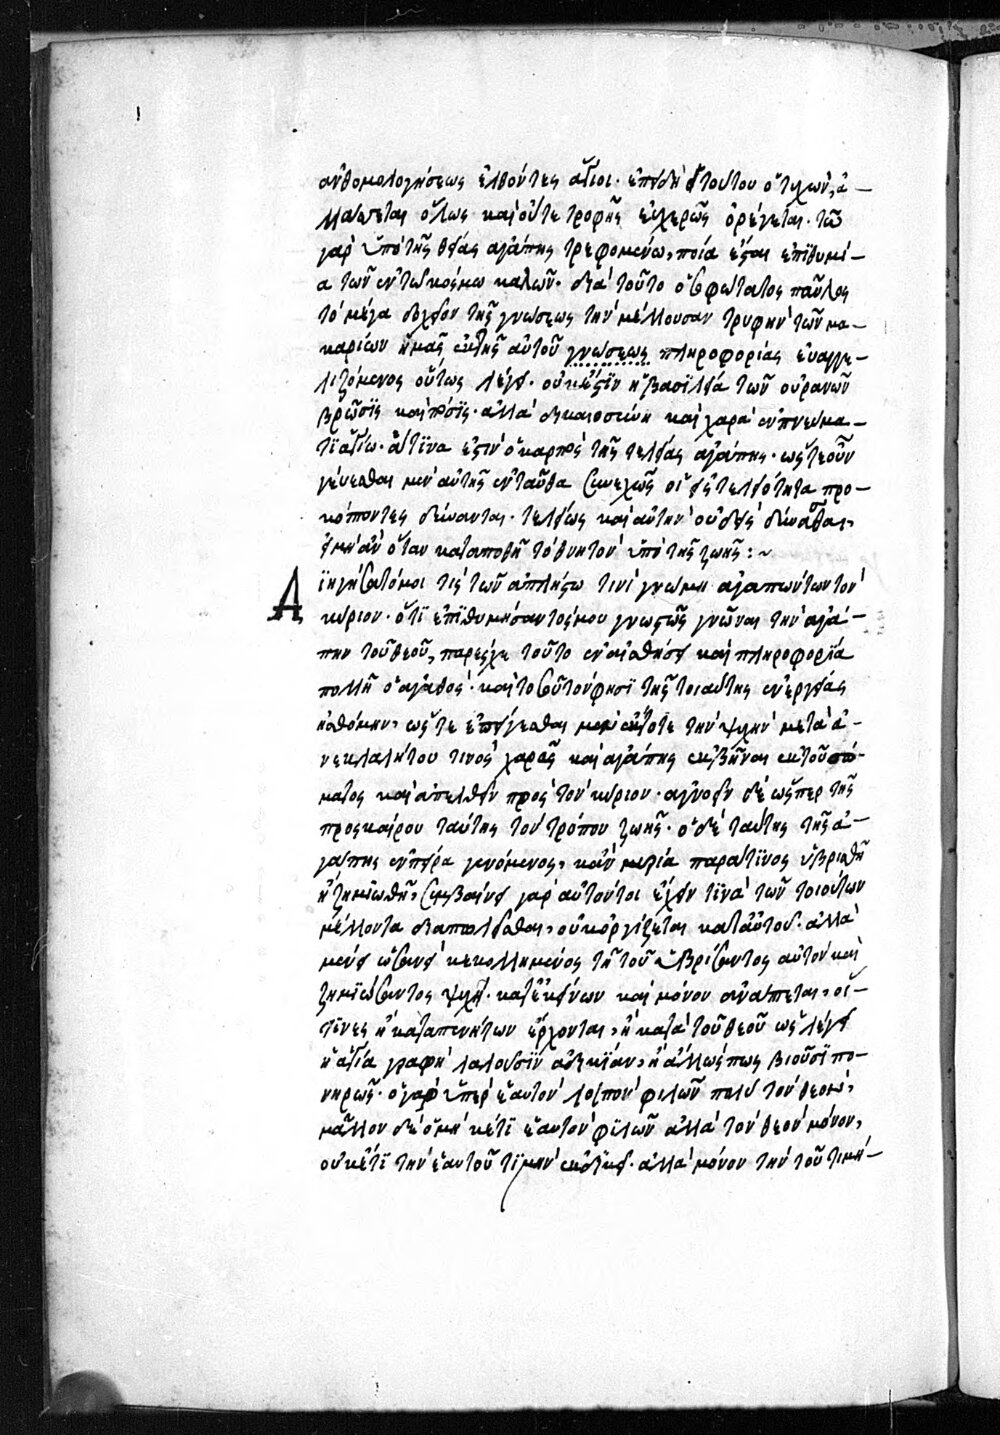 ἀνθομολογήσεως ἐλθόντες ἄξιοι· ἐπειδὴ ὁ τούτου ὁ τυχὼν, ἀ-
γάπης ὅλως καὶ οὔτε τροφῆς εὐχερῶς ὀρέγεται. τῶ
γὰρ ὑπὸ τῆς θείας ἀγάπης τρεφομένω, ποία ἔσται ἐπιθυμί-
α τῶν ἐν τῶ κόσμω καλῶν· διὰ τοῦτο ὁ σοφώτατος παῦλος
τὸ μέγα δοχεῖον τῆς γνώσεως τὴν μέλλουσαν τρυφὴν τῶν μα-
καρίων ἡμᾶς ἐκ τῆς αὐτοῦ γνώσεως πληροφορίας εὐαγγε-
λιζόμενος οὕτως λέγει· οὐκ ἔστιν ἡ βασιλεία τῶν οὐρανῶν
βρῶσις καὶ πόσις· ἀλλὰ δικαιοσύνη καὶ χαρὰ ἐν πνεύμα-
τι ἁγίω· ἅτινα ἐστιν ὁ καρπὸς τῆς τελείας ἀγάπης· ὥστε οὖν
γεύεσθαι μὲν αὐτῆς ἐνταῦθα συνεχῶς οἱ εἰς τελειότητα προ-
κόπτοντες δύνανται· τελείως καὶ αὐτὴν οὐδεὶς δύναται,
εἰ μὴ ἂν ὅταν καταποθῆ τὸ θνητὸν ὑπὸ τῆς ζωῆς:~
Διηγήσατό μοι τίς τῶν ἀπλήστω τινὶ γνώμη ἀγαπώντων τὸν
κύριον· ὅτι ἐπιθυμήσαντός μου γνωστῶς γνῶναι τὴν ἀγά-
πην τοῦ θεοῦ, παρέσχε τοῦτο ἐν αἰσθήσει καὶ πληροφορία
πολλῆ ὁ ἀγαθὸς· καὶ τοσοῦτον φησὶ τῆς τοιαύτης ἐνεργείας
ἠσθόμην, ὥστε ἐπείγεσθαι μου ἐκ τότε τὴν ψυχὴν μετὰ ἀ-
νεκλαλήτου τινὸς χαρᾶς καὶ ἀγάπης ἐκβῆναι ἐκ τοῦ σώ-
ματος καὶ ἀπελθεῖν πρὸς τὸν κύριον· ἀγνοεῖν δὲ ὥσπερ τῆς
προσκαίρου ταύτης τὸν τρόπον ζωῆς· ὁ δὲ ταύτης τῆς ἀ-
γάπης ἐν πείρα γενόμενος, κἂν μυρία παρά τινος ὑβρισθῆ
ἢ ζημιωθῆ, συμβαίνει γὰρ αὐτόν τοι ἔχειν τινὰ τῶν τοιούτων
μέλλοντα διαπωλεῖσθαι, οὐκ ὀργίζεται κατ' αὐτοῦ· ἀλλὰ
μένει ὡσανεὶ κεκολλημένος τῆ τοῦ ὑβρίσαντος αὐτὸν καὶ
ζημιώσαντος ψυχῆ· κατ' ἐκείνων καὶ μόνον ἀνάπτεται, οἵ-
τινες ἢ κατὰ πενήτων ἔρχονται, ἢ κατὰ τοῦ θεοῦ ὡς λέγει
ἡ ἁγία γραφὴ λαλοῦσιν ἀδικίαν, ἢ ἄλλως πως βιοῦσι πο-
νηρῶς· ὁ γὰρ ὑπὲρ ἑαυτὸν λοιπὸν φιλῶν πολὺ τὸν θεὸν,
μᾶλλον δὲ ὁ μηκέτι ἑαυτὸν φιλῶν ἀλλὰ τὸν θεὸν μόνον,
οὐκέτι τὴν ἑαυτοῦ τιμὴν ἐκδικεῖ· ἀλλὰ μόνον τὴν τοῦ τιμή-